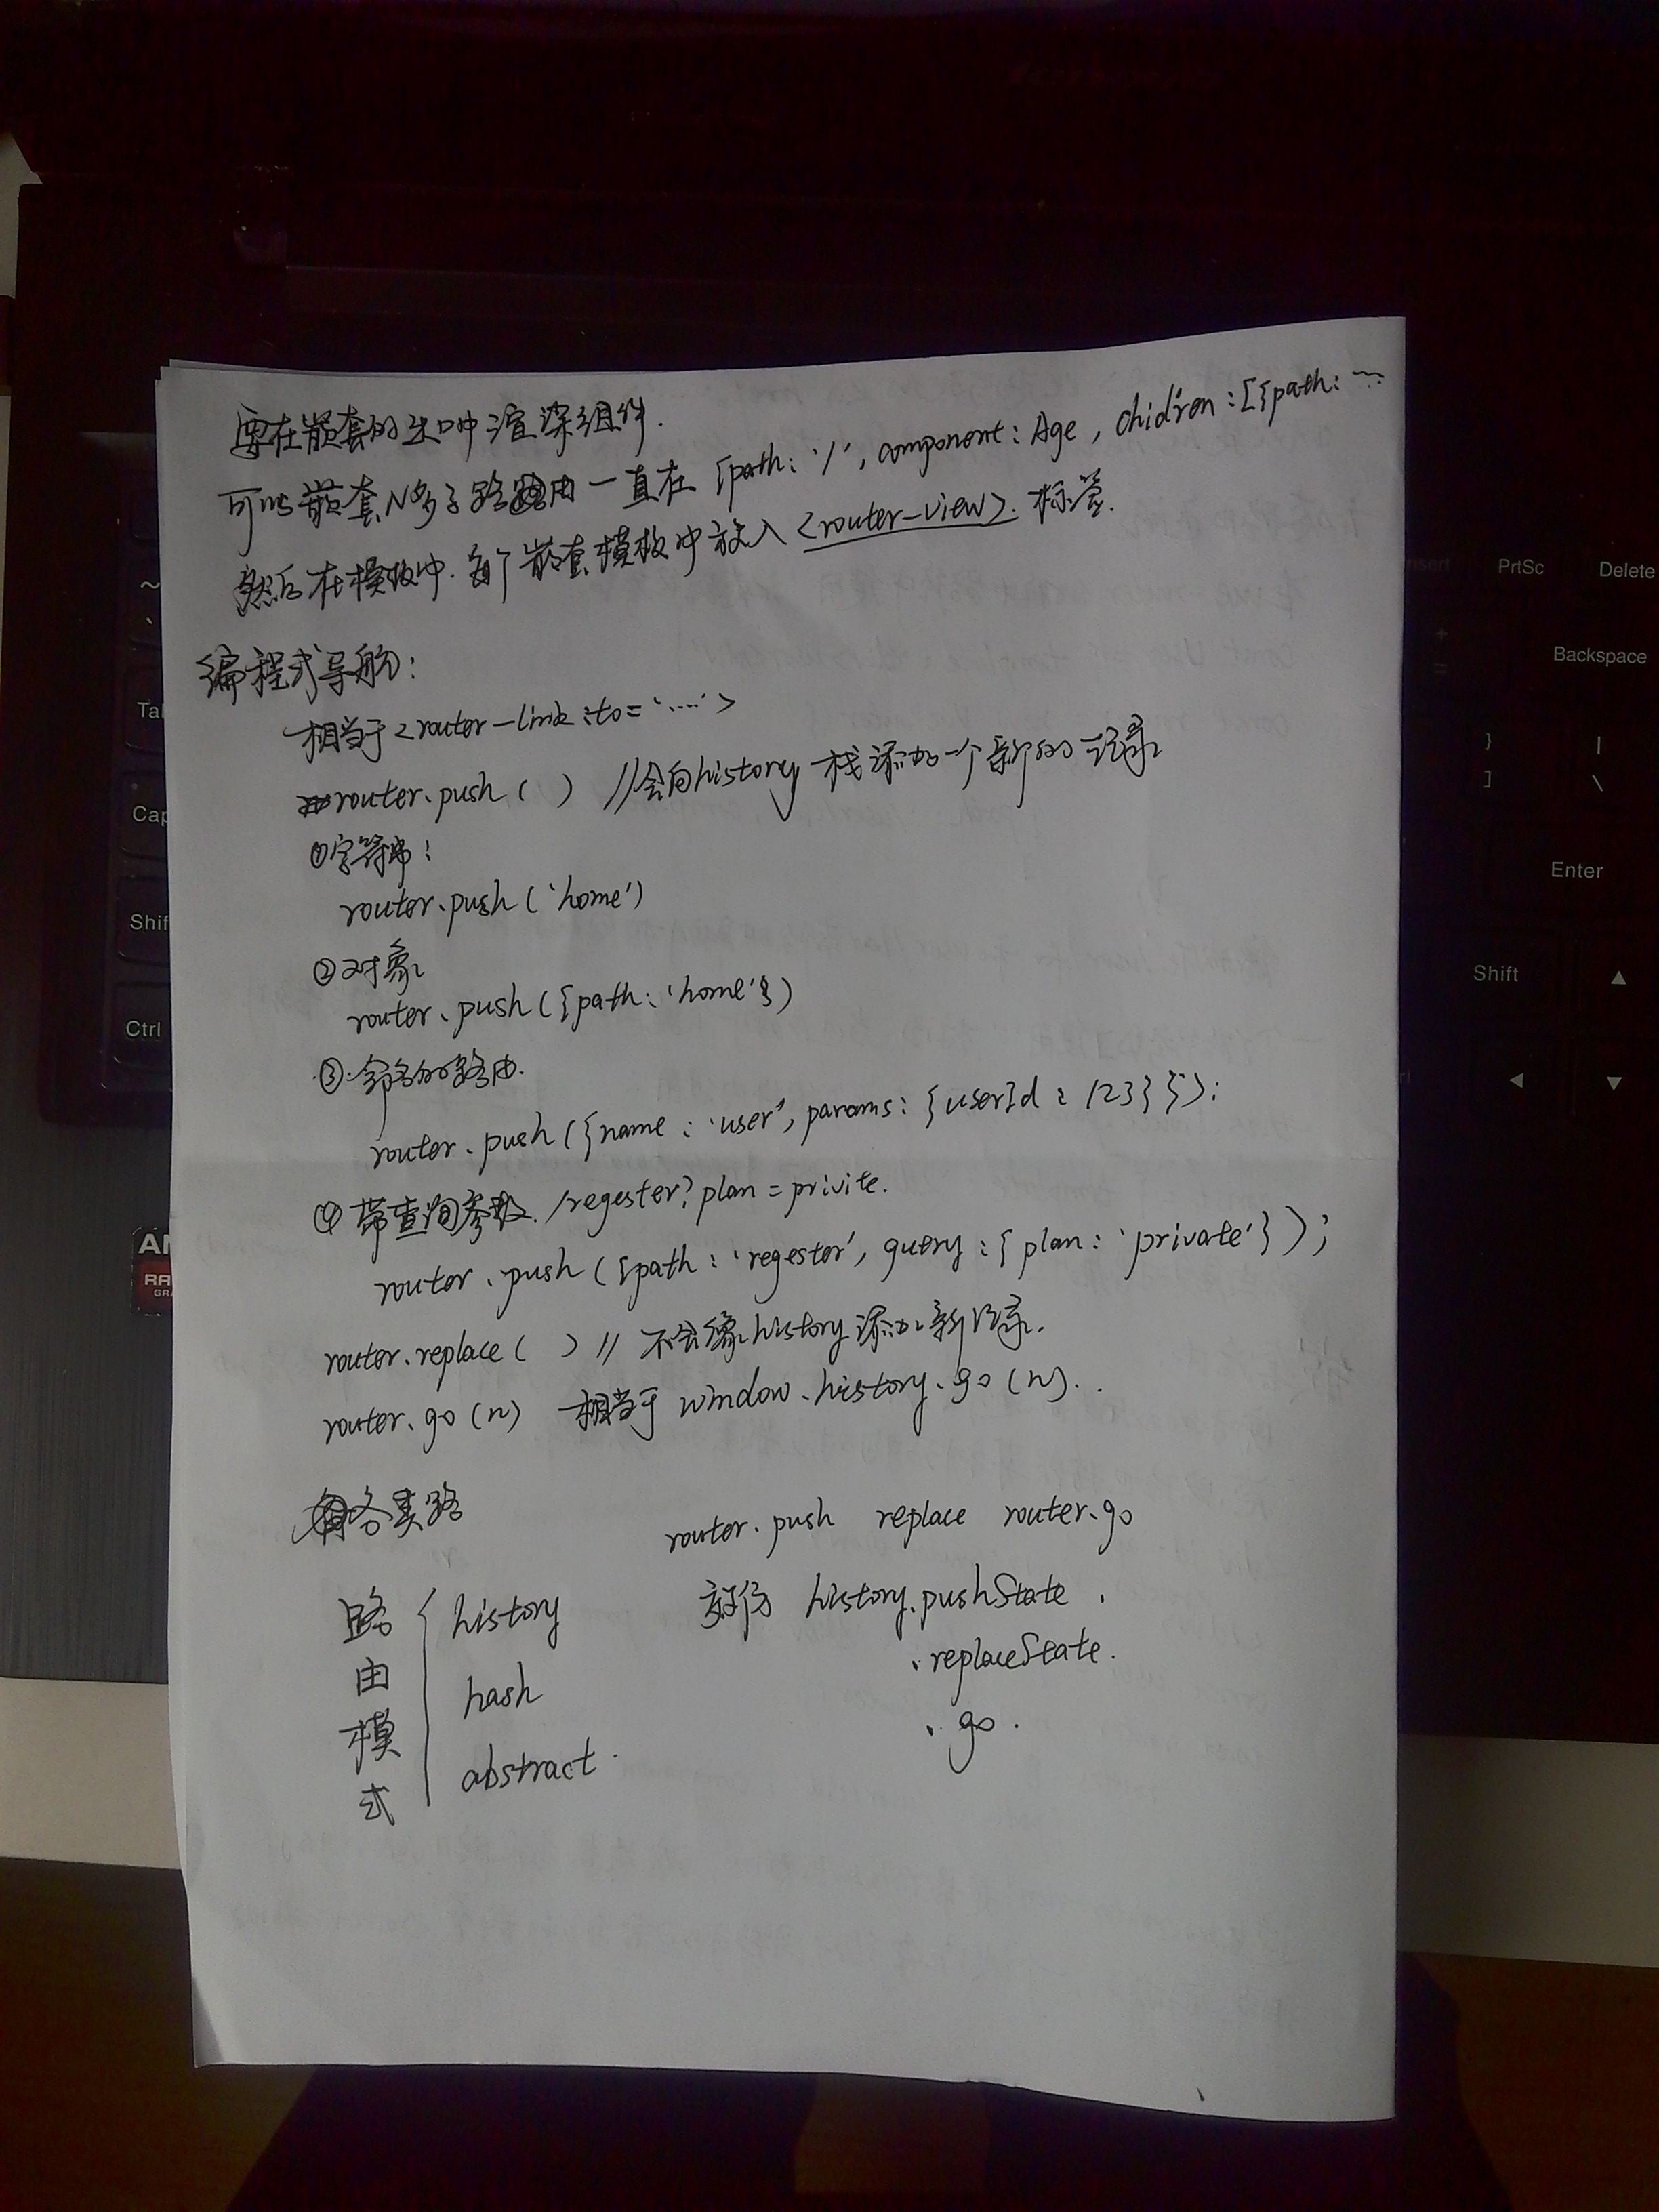 要在嵌套的出口中渲染组件.
可以嵌套N多子路由一直在 {path: '/', component: Age, chidren:[{path: ...
然后在模板中.每个嵌套模板中放入<router-view>.标签.
编程式导航:
相当于<router-link :to='....'>
router.push( ) //会向history栈添加一个新的记录
①字符串:
router.push('home')
②对象
router.push({path:'home'})
③命名的路由.
router.push({name:'user', params:{userId:123}});
④带查询参数. /regester?plan=privite.
router.push({path:'regester', query:{plan:'private'}});
router.replace( ) // 不会像history添加新记录.
router.go(n) 相当于 window.history.go(n)..
router.push replace router.go
路由模式
history
hash
abstract.
history.pushState.
.replaceState.
.go.
PrtSc
Delete
Backspace
Enter
Shift
Cap
Shif
Ctrl